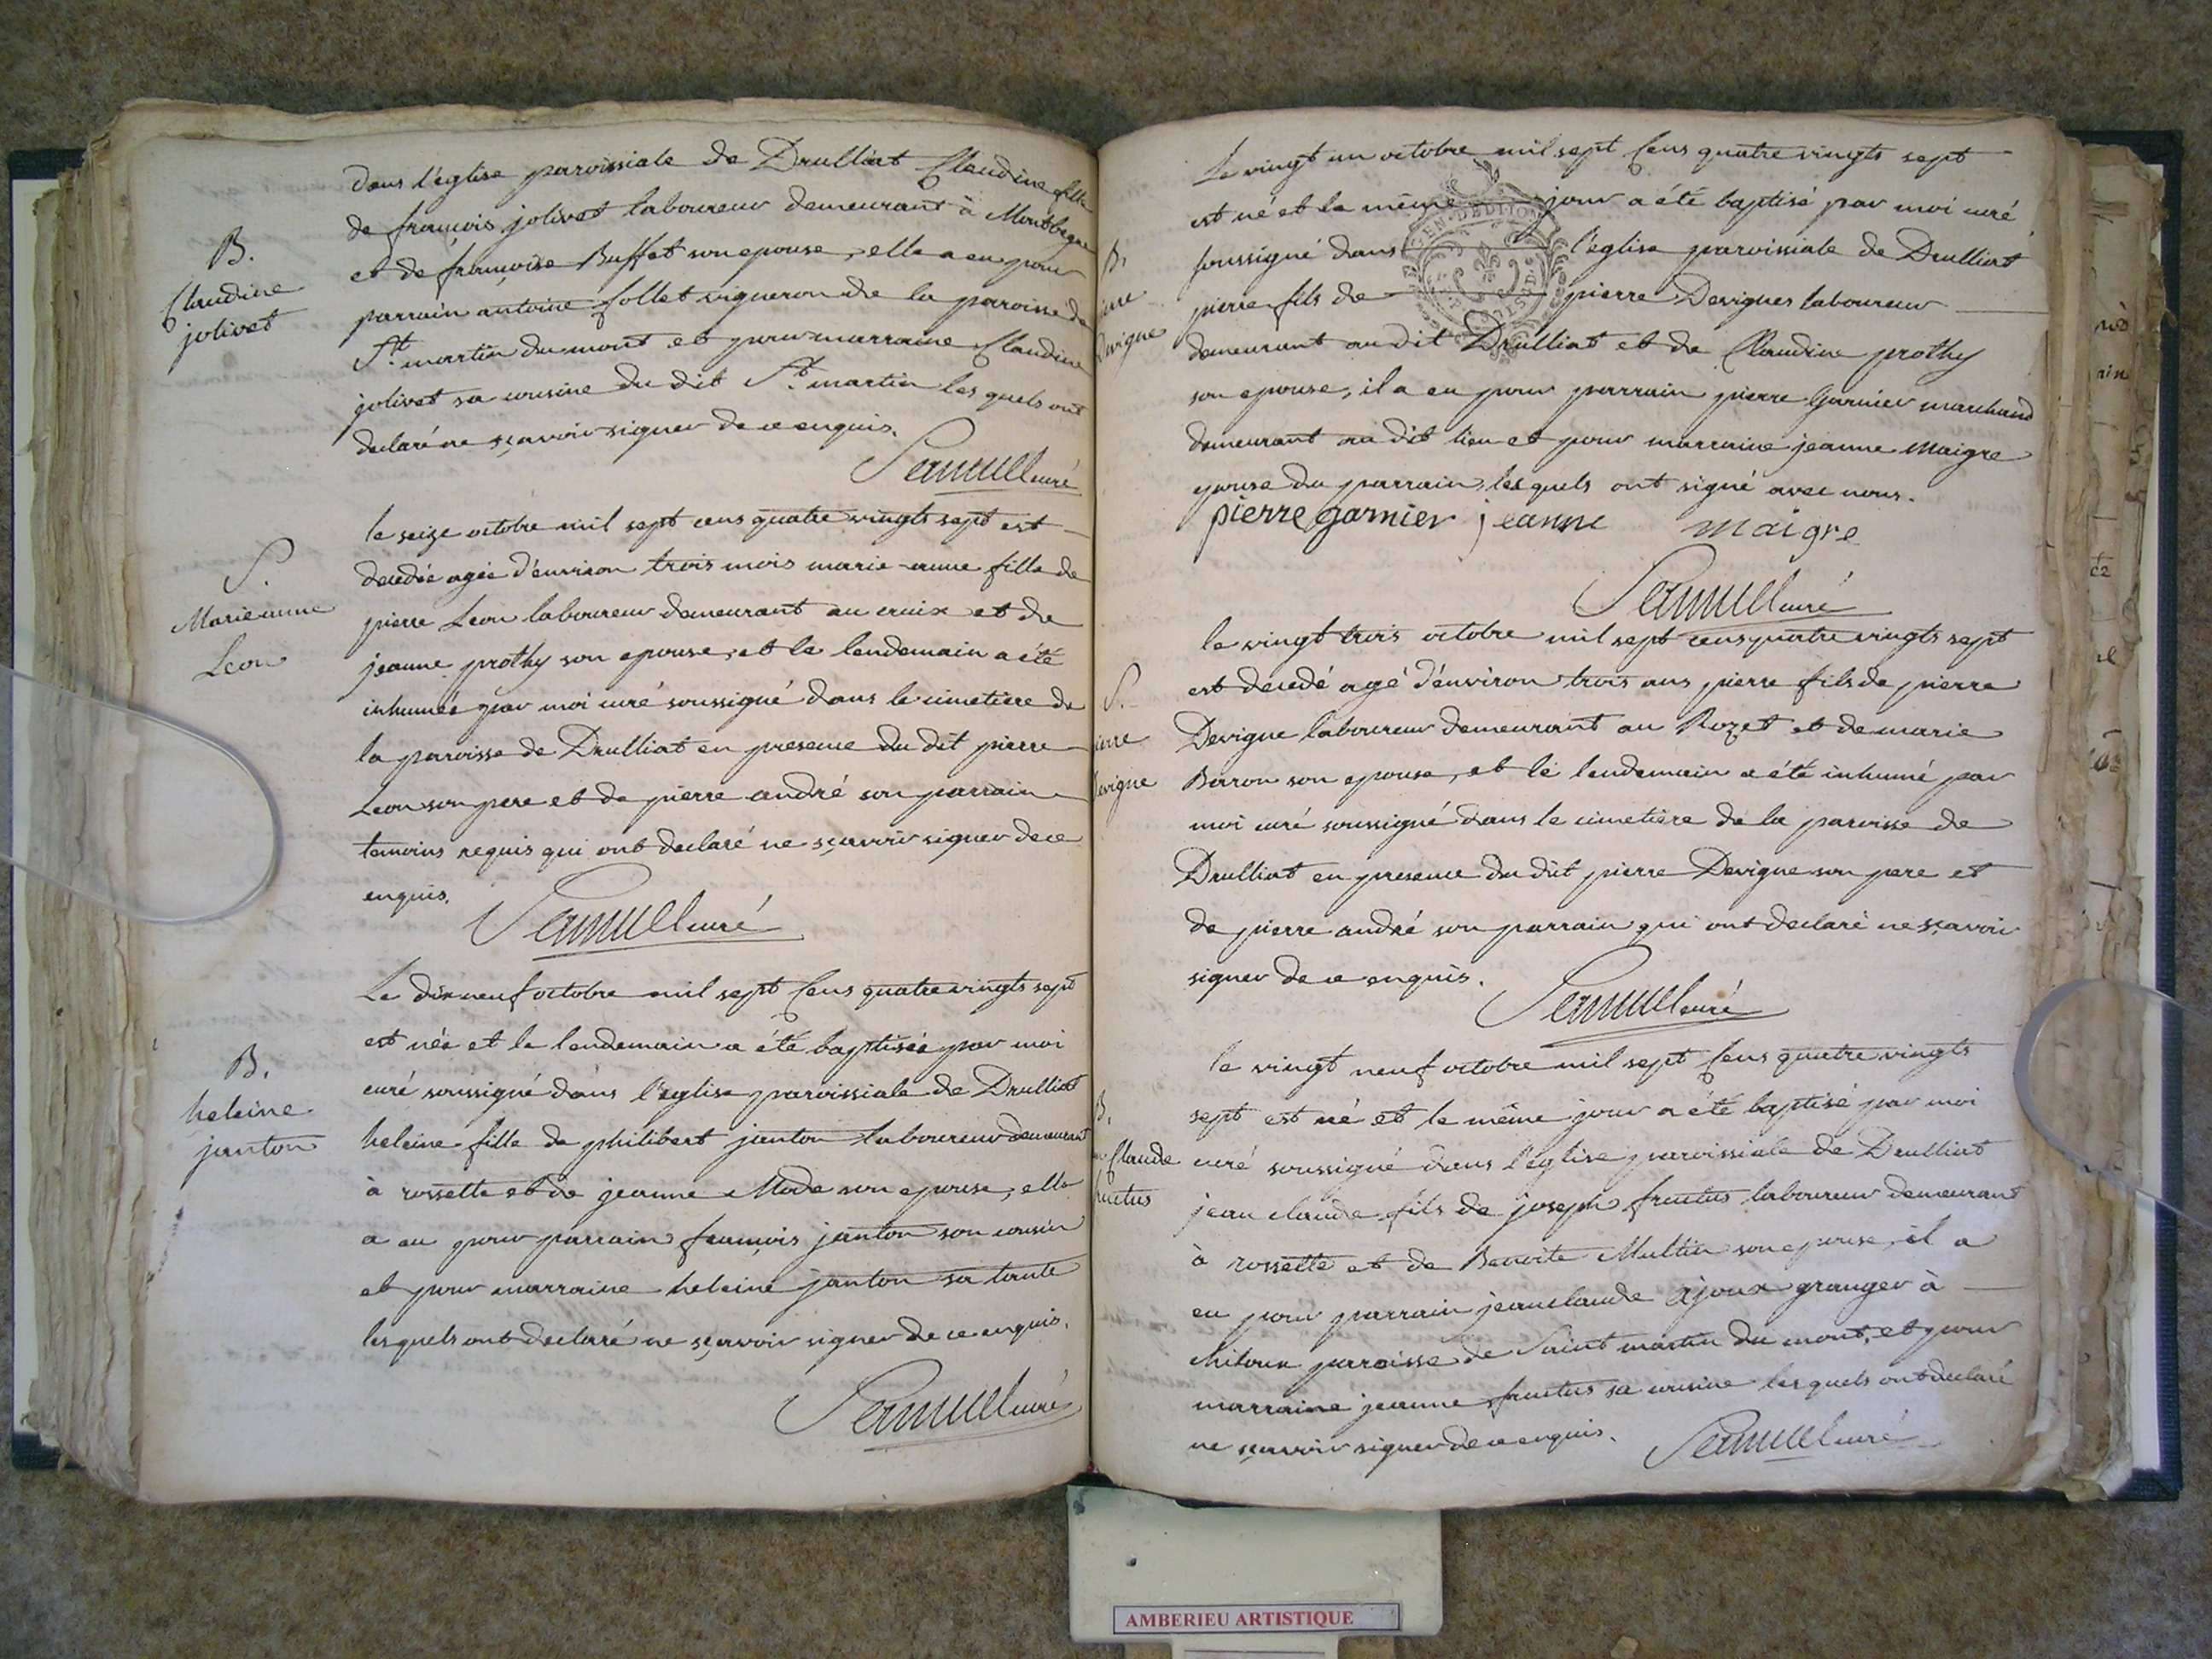 dans l'église paroissiale de Drulliat Claudine fille
de françois jolivet laboureur demeurant à Montbegue
B.
Claudine
jolivet
et de françoise Buffet son epouse, elle a eu pour
parrain antoine follet vigneron de la paroisse de
St. martin du mont et pour marraine Claudine
jolivet sa cousine du dit St. martin les quels ont
declaré ne sçavoir signer de ce enquis.
curé
S.
Marie anne
Leon
le seize octobre mil sept cens quatre vingts sept est
decedée agée d'environ trois mois marie-anne fille de
pierre Leon laboureur demeurant au cruix et de
jeanne prothy son epouse, et le lendemain a été
inhumée par moi curé soussigné dans le cimetiere de
la paroisse de Drulliat en presence du dit pierre
Leon son pere et de pierre andré son parrain
temoins requis qui ont declaré ne sçavoir signer de ce
enquis.
curé
B.
heleine
janton
Le dix neuf octobre mil sept Cens quatre vingts sept
est née et le lendemain a été baptisée par moi
curé soussigné dans l'eglise paroissiale de Drulliat
heleine fille de philibert janton laboureur demeurant
à rossette et de jeanne Mode son epouse, elle
a eu pour parrain françois janton son cousin
et pour marraine heleine janton sa tante
lesquels ont declaré ne sçavoir signer de ce enquis.
curé
B.
Devigne
Le vingt un octobre mil sept Cens quatre vingts sept
est né et le même jour a été baptisé par moi curé
soussigné dans l'eglise paroissiale de Drulliat
pierre fils de pierre Devignes laboureur
demeurant au dit Drulliat et de Claudine prothy
son epouse, il a eu pour parrain pierre Garnier marchand
demeurant au dit lieu et pour marraine jeanne Maigre
epouse du parrain, lesquels ont signé avec nous.
pierre garnier jeanne maigre
curé
S.
Devigne
le vingt trois octobre mil sept cens quatre vingts sept
est decedé agé d'environ trois ans pierre fils de pierre
Devigne laboureur demeurant au Rozet et de marie
Baron son epouse, et le lendemain a été inhumé par
moi curé soussigné dans le cimetière de la paroisse de
Drulliat en presence du dit pierre Devigne son pere et
de pierre andré son parrain qui ont declaré ne sçavoir
signer de ce enquis.
curé
B.
Claude
fructus
le vingt neuf octobre mil sept Cens quatre vingts
sept est né et le même jour a été baptisé par moi
curé soussigné dans l'eglise paroissiale de Drulliat
jean claude fils de joseph fructus laboureur demeurant
à rossette et de Benoite Multin son epouse, il a
eu pour parrain jean claude ajoux granger à
chiloux paroisse de Saint martin du mont, et pour
marraine jeanne fructus sa cousine lesquels ont declaré
ne sçavoir signer de ce enquis. curé
AMBERIEU ARTISTIQUE